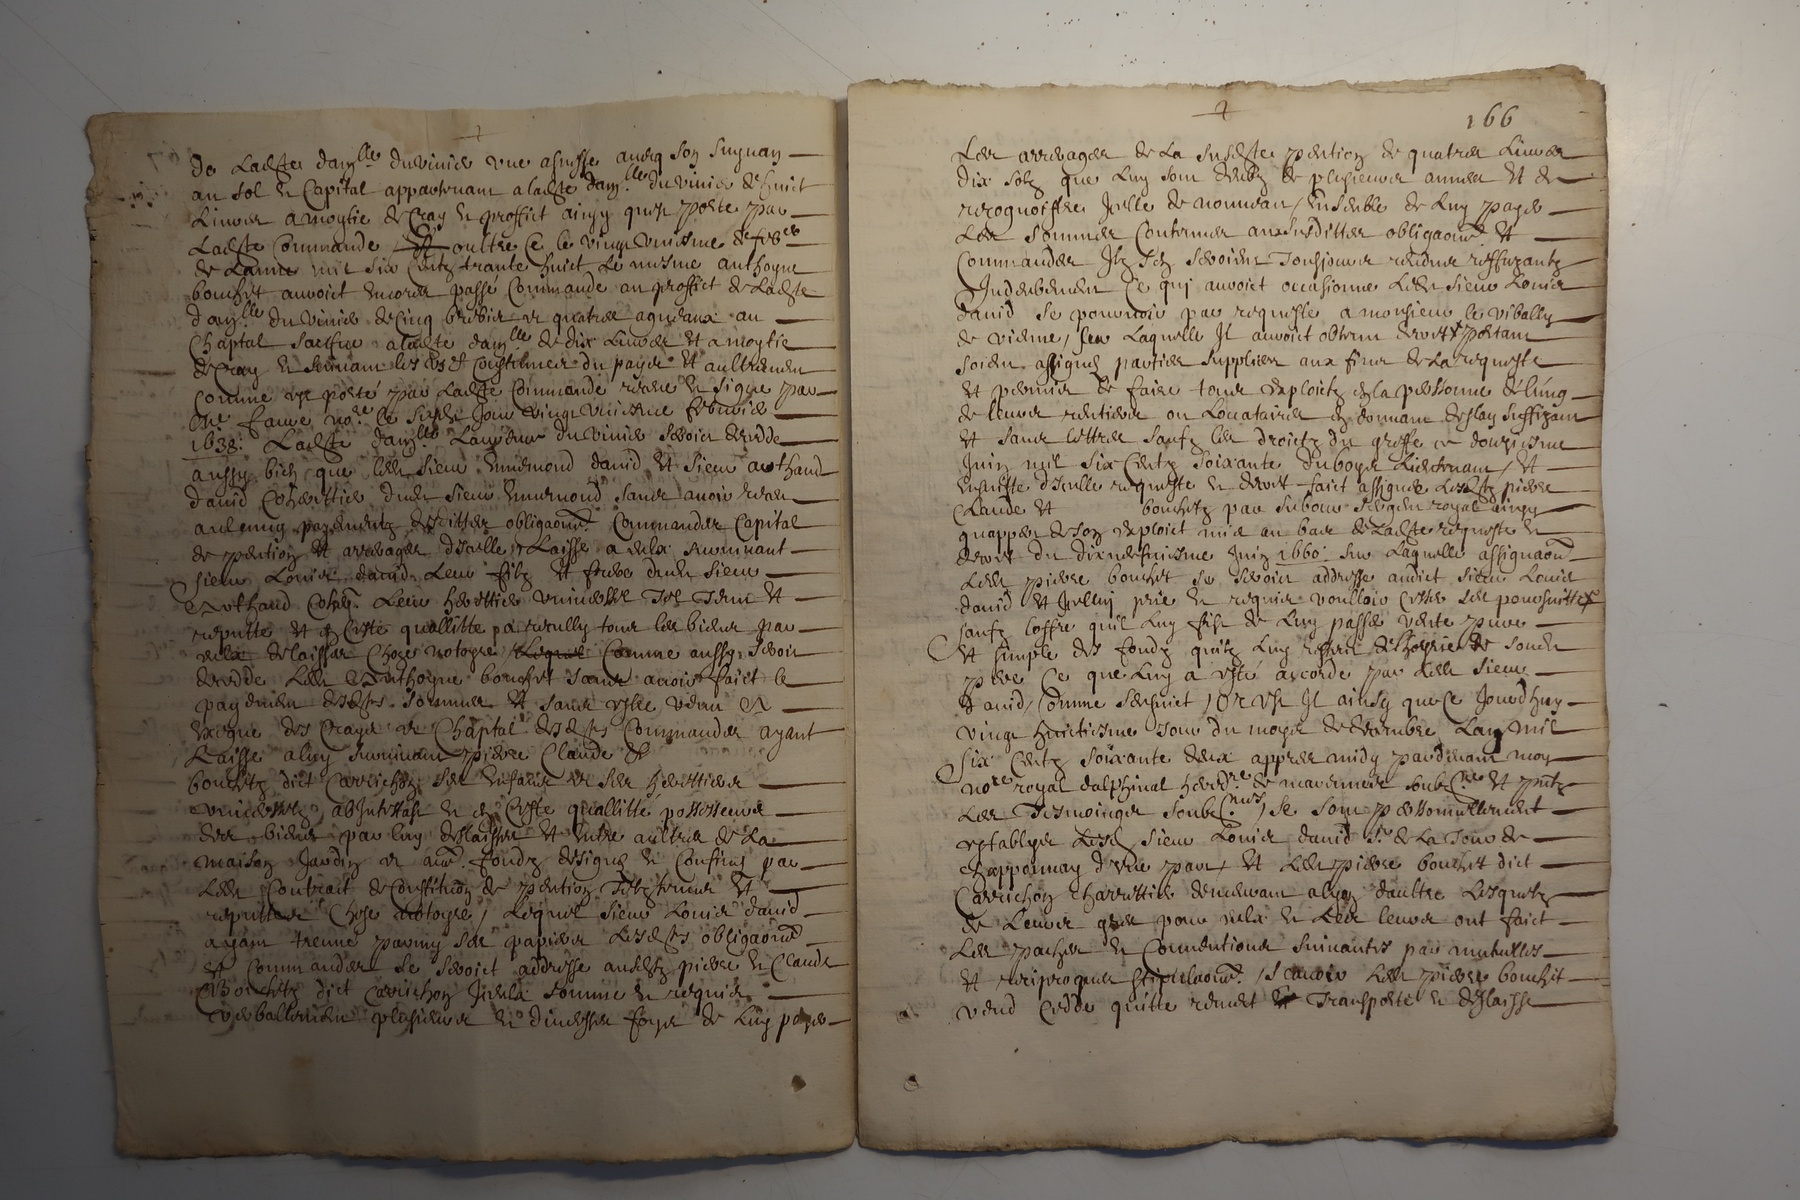 de ladite damlle duvinier une asnesse avecq son suyvan
au sol et Capital appartenant a ladite damlle duvinier de huict
Livres a moytie de Cray et proffict ainsy quest porte par
Ladite Commande et oultre Ce le vingt uniesme de febver
de Lannee mil six Centz trante huict Le mesme anthoyne
bouchet auroict encores passe Commande au proffict de Ladite
damlle du vinier de Cinq brebis et quatre agneaux au
Chaptal a ladite damlle de dix Livres et a moytie
de Cray et suivant les us et Coustumes du payis et aultrement
Comme est porté par Ladite Commande receue et signe par
Me faure nore le susdit Jour vingt uniesme febvrier
1638. Ladite damlle duvinier seroict decedde
aussy bien que ledit sieur ennemond david et sieur arthaud
david Coheritier dudit sieur ennemond sans avoir receu
aulcung payementz desdittes obligaons Commandes Capital
de pention et arrerages dicelle Laisse a eulx survivant
sieur Louis david Leur filz et frere dudit sieur
Arthaud Leur heritier universel Tel Tenu et
reputte et en Ceste quallitte recully tous les biens par
eulx delaisses Chose notoyre Comme aussy seroict
decedde ledit anthoyne bouchet sans avoir faict le
payement desdits sommes et sans estre venu a
des Crays et Chaptal desdits Commandes ayant
Laisse a luy survivant pierre Claude et
bouchetz dict Carrichon ses enfans et ses heritiers
universelz abintestat et en Ceste quallitte possesseurs
des biens par luy delaisses et entre aultres de La
maison Jardin et aues fondz designe et Confine par
Ledit Contrait de Constitution de pention Telz tenus et
reputtes Chose notoyre, Lequel sieur Louis david
ayant treuve parmy ses papiers Lesdits obligaons
et Commandes se seroict addresse ausditz pierre et Claude
Bouchetz dict Carrichon Iceulx somme et requis
verballement plusieurs et diverses foys de Luy payer
166
Les arrerages de La susdite pention de quatre Livres
dix solz que Luy sont deubz de plusieurs annees et de
recognoistre Icelle de nouveau, ensemble de Luy payer
Les sommes Contenues aux susdittes obligaons et
Commandes Ilz sen seroient Tousjours rendus reffuzantz
Indeuement Ce qui auroict occasionne Ledit sieur Louis
david se pourvoir par requeste a monsieur le vibally
de vienne, sur Laquelle Il auroict obtenu decret portant
soient assignes parties supplies aux fins de La requeste
et permis de faire tous exploitz en la personne de lung
de leurs rentiers ou Locataires en donnant deslay suffizant
et sans lettres saufz les droictz du greffe ce douziesme
Juin mil six Centz soixante duboys Lieutenant, et
ensuitte dicelle requeste et decret faict assigner Lesditz pierre
Claude et bouchetz par sergent royal ainsy
quappert de son exploict mis au bas de Ladite requeste et
decret du dixneufviesme Juin 1660. sur Laquelle assignaon
Ledit pierre bouchet se seroict addresse audict sieur Louis
david et Icelluy prie et requis voulloir cesser ses poursuittes
saufz loffre quil Luy fist de Luy passer vente pure
et simple des fondz quilz Luy de soudit
pere Ce que Luy a esté accorde par Ledit sieur
david, Comme sensuict, Or est Il ainsy que Ce Jourdhuy
vingt huictiesme Jour du moys de decembre Lan mil
six Centz soixante deux appres midy pardevant moy
nore royal dalphinal soubzne et pntz
Les Tesmoingts soubznes, se sont personnellement
establys Ledit sieur Louis david sr de La Tour de
Chapponnay dune part, et Ledit pierre bouchet dict
Carrichon Charrettier demeurant daultre Lesquelz
de Leurs gres pour eulx et Leurs leurs ont faict
Les paches et Conventions suivantes par mutuelles
et reciproques stipulaons, Scavoir Ledit pierre bouchet
vend Cedde quitte remet et Transporte et deslaisse